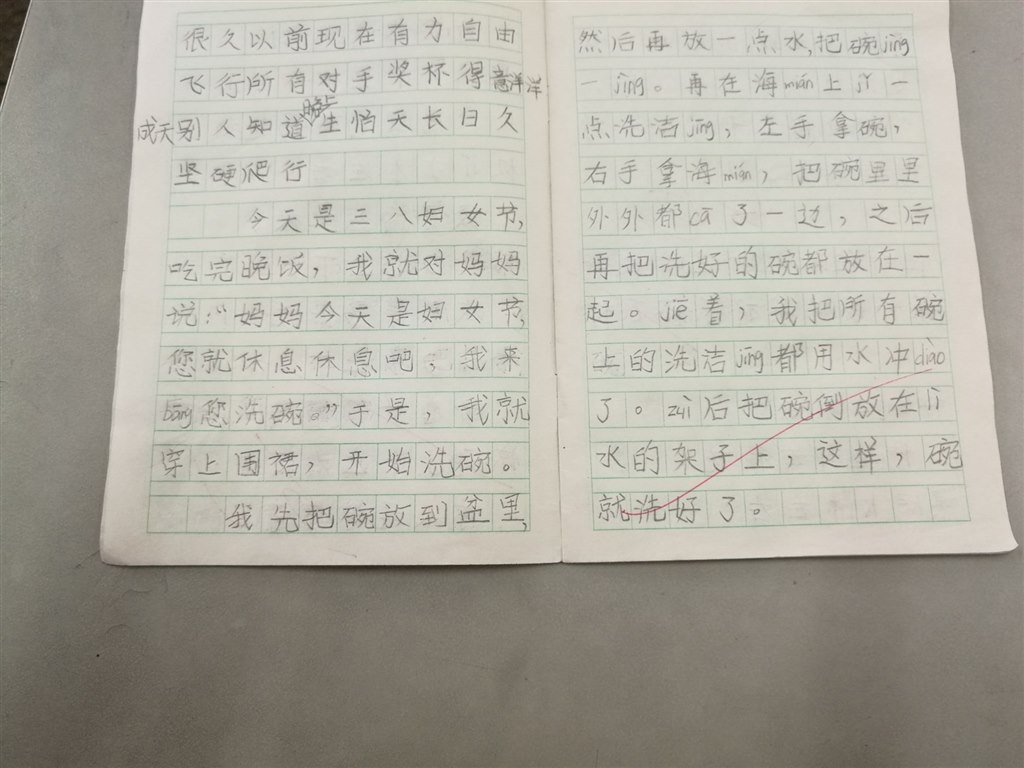 很久以前现在有力自由
飞行所有对手奖杯得意洋洋
成天别人知道陌生怕天长日久
坚硬爬行
今天是三八妇女节,
吃完晚饭，我就对妈妈
说：“妈妈今天是妇女节,
您就休息休息吧，我来
bāng您洗碗。”于是，我就
穿上围裙，开始洗碗。
我先把碗放到盆里,
然后再放一点水,把碗jìng
一jìng。再在海mián上jǐ一
点洗洁jīng，左手拿碗，
右手拿海mián，把碗里里
外外都cā了一边，之后
再把洗好的碗都放在一
起。jiē着，我把所有碗
上的洗洁jīng都用水冲diào
了。zuì后把碗倒放在lì
水的架子上，这样，碗
就洗好了。